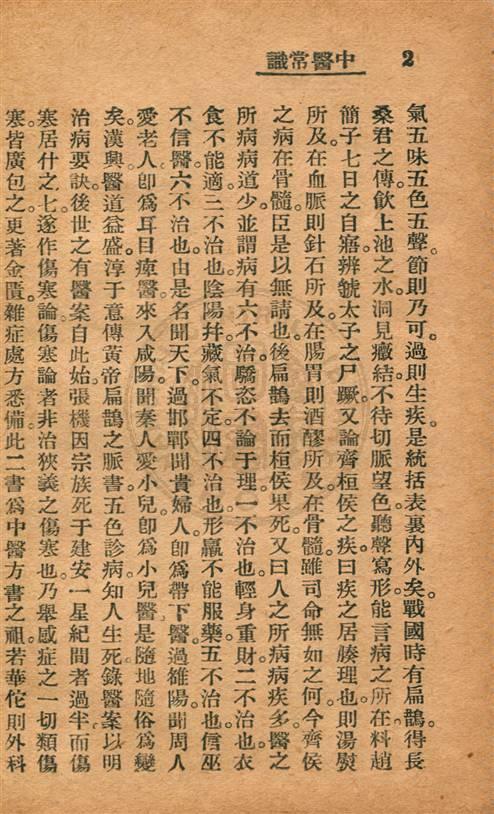 2
中醫常識
氣五味五色五聲。節則乃可。過則生疾。是統括表裏內外矣。戰國時有扁鵲。得長
桑君之傳。飲上池之水。洞見癥結。不待切脈望色。聽聲寫形。能言病之所在。料趙
簡子七日之自寤。辨虢太子之尸蹶。又論齊桓侯之疾。曰疾之居腠理也。則湯熨
所及。在血脈則針石所及。在腸胃則酒醪所及。在骨髓。雖司命無如之何。今齊侯
之病在骨髓。臣是以無請也。後扁鵲去而桓侯果死。又曰人之所病病疾多。醫之
所病病道少。並謂病有六不治。驕恣不論于理。一不治也。輕身重財。二不治也。衣
食不能適。三不治也。陰陽幷。藏氣不定。四不治也。形羸不能服藥。五不治也。信巫
不信醫。六不治也。由是名聞天下。過邯鄲聞貴婦人。卽爲帶下醫。過雒陽。聞周人
愛老人。卽爲耳目痺醫。來入咸陽。聞秦人愛小兒。卽爲小兒醫。是隨地隨俗爲變
矣。漢興。醫道益盛。淳于意傳黃帝扁鵲之脈書。五色診病。知人生死。錄醫案以明
治病要訣。後世之有醫案自此始。張機因宗族死于建安一星紀間者過半。而傷
寒居什之七。遂作傷寒論。傷寒論者。非治狹義之傷寒也。乃舉感症之一切類傷
寒。皆廣包之。更著金匱。雜症處方悉備。此二書爲中醫方書之祖。若華佗則外科